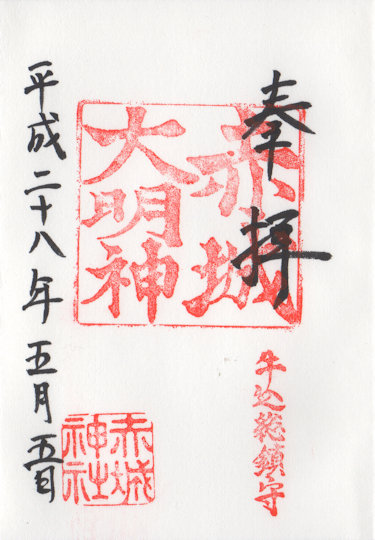 奉拝
赤城
大明神
牛込総鎮守
平成二十八年五月五日
赤城
神社